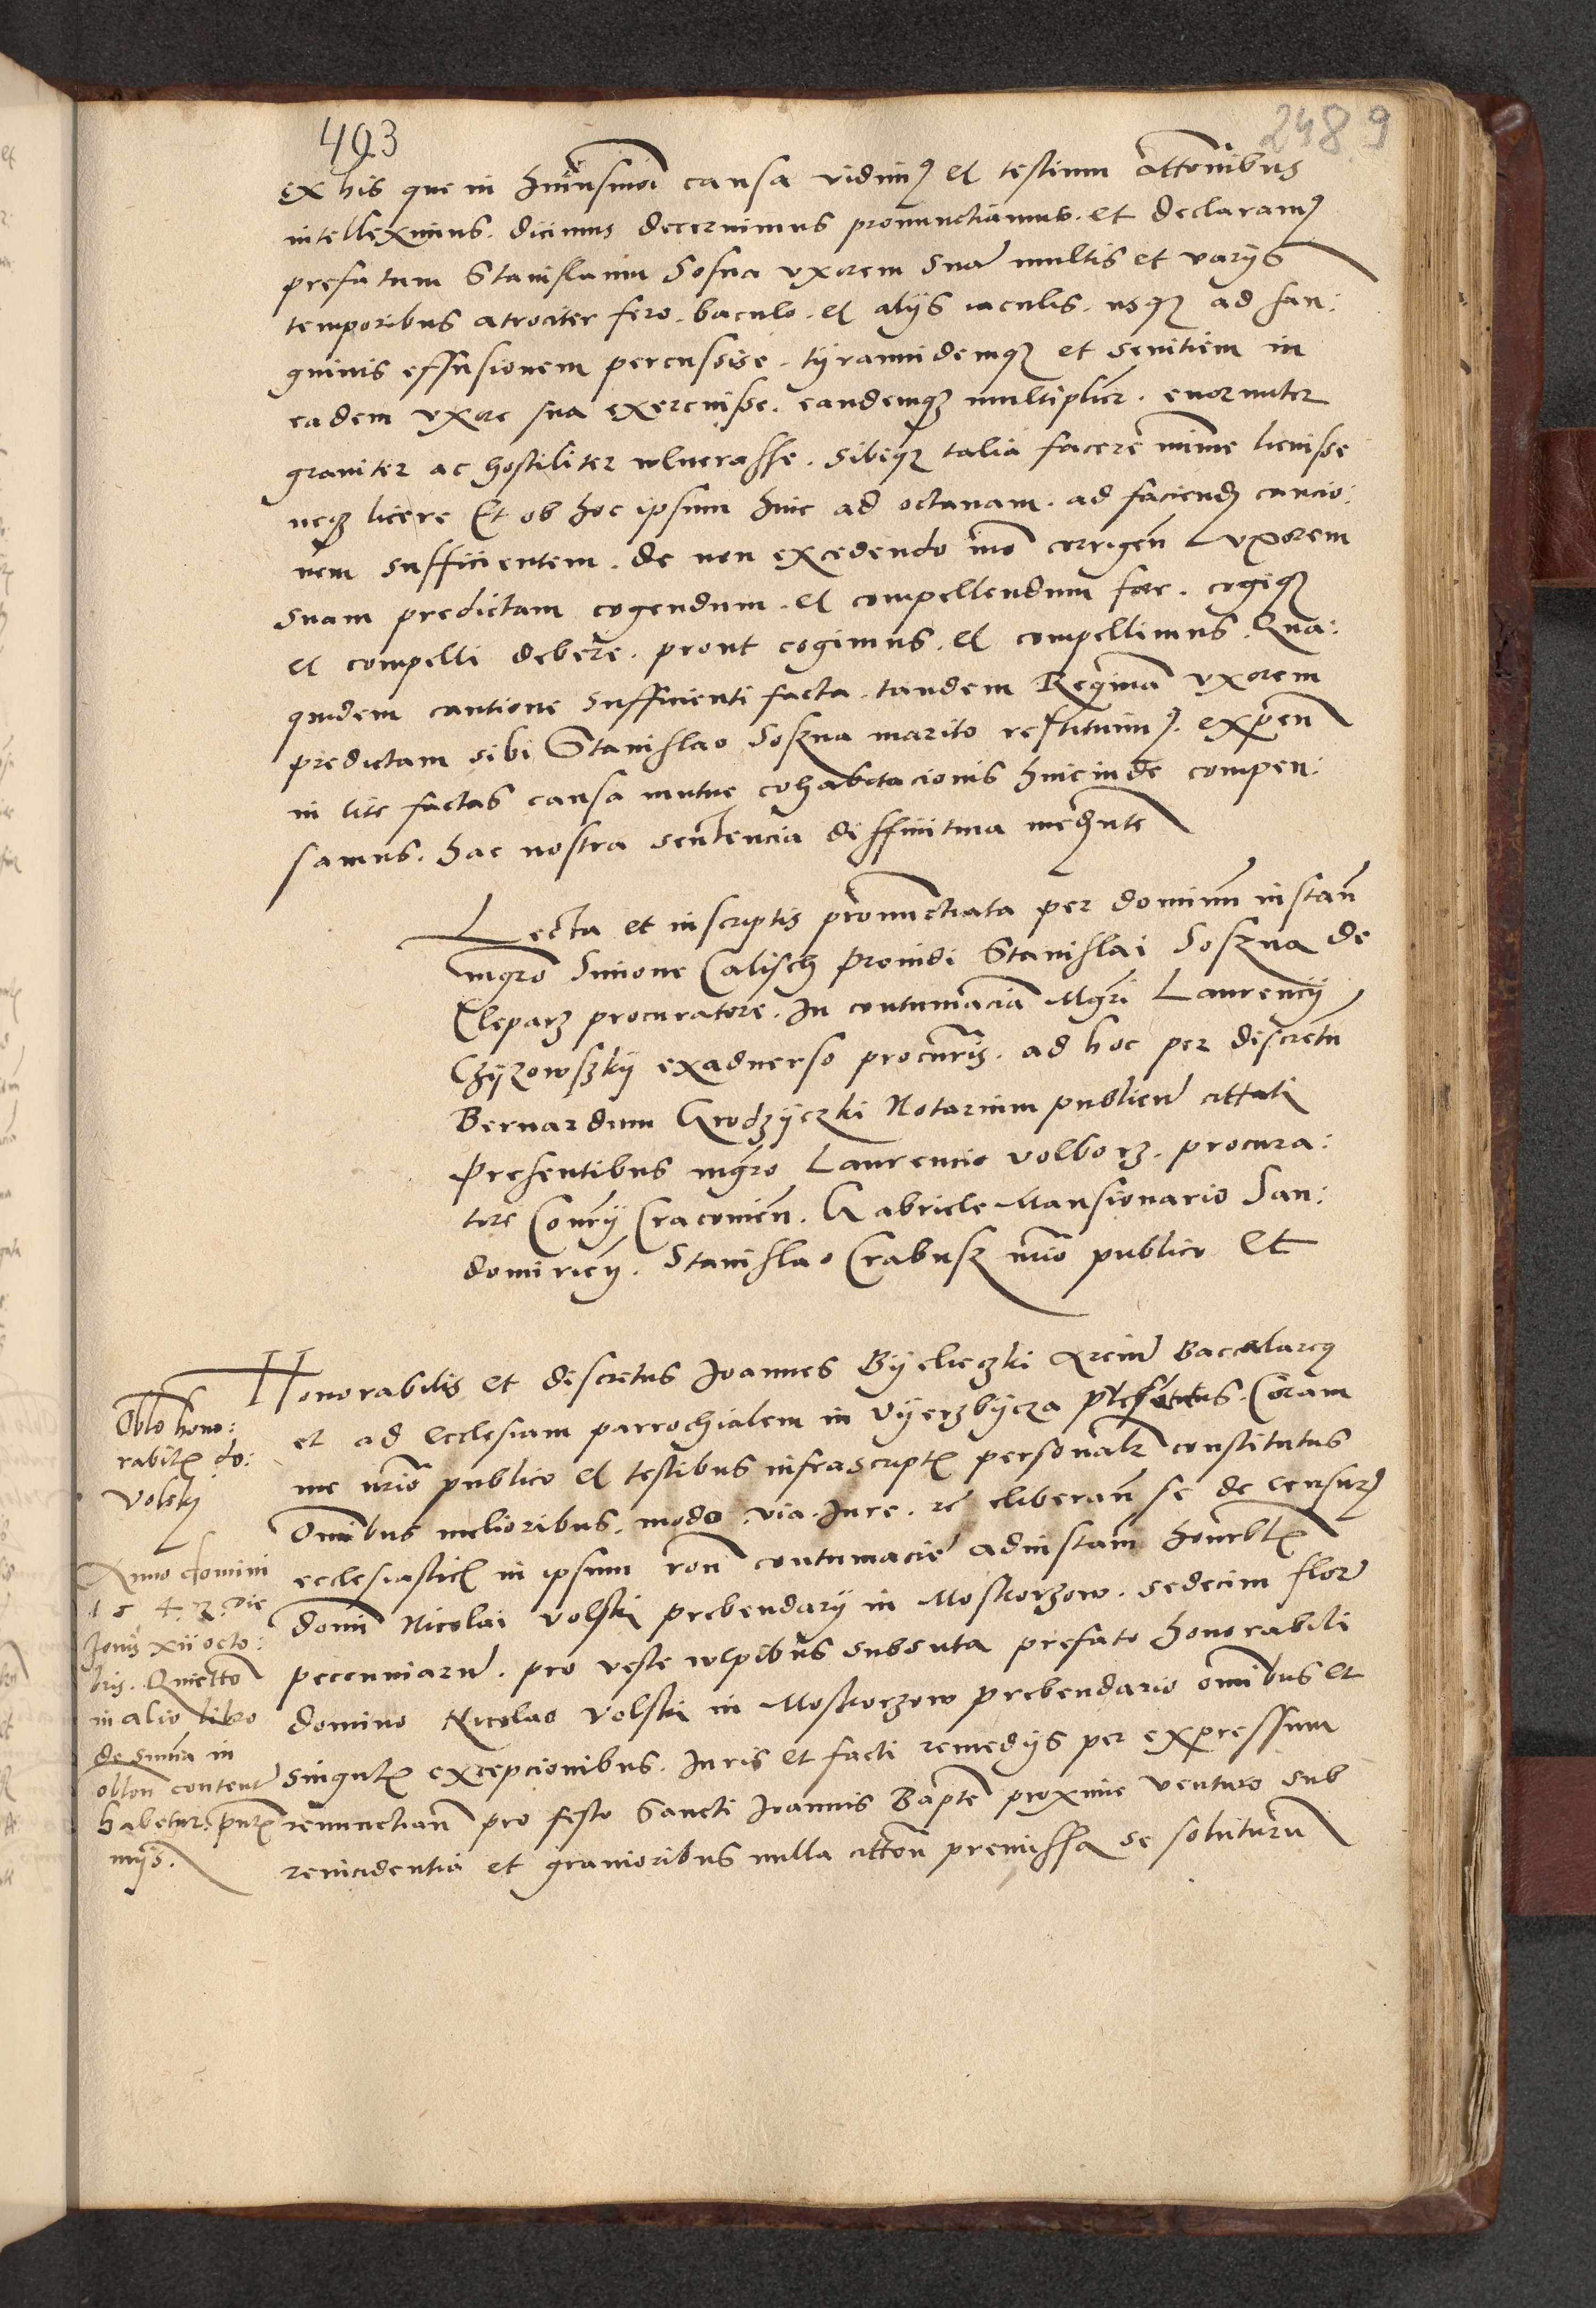 493
248 9
ex his que in huiusmoi causa vidim9 et testium attonibus
intelleximus. dicimus decernimus pronunctiamus. et declaram9
prefatum Stanislaum Sosna vxorem sua multis et varys
temporibus atrociter fero. baculo. et alys iaculis. usq3 ad san:
guinis effusionem percussisse. tyrannidemq3 et seuitiem in
eadem vxore sua exercuisse. eandemq3 multiplicr. enormiter
grauiter ac hostiliter vlnerasse. sibiq3 talia facere mime licuisse
neq3 licere Et ob hoc ipsum hinc ad octauam. ad faciend caucio:
nem sufficientem. de non excedendo mo corrigen vxorem
suam predictam cogendum. et compellendum fore. cogiq3
et compelli debere. prout cogimus. et compellimus. Qua:
quidem cautione sufficienti facta. tandem Regina vxorem
predictam sibi Stanislao Soszna marito restituim9. expen
in lite factas causa mutue cohabitacionis hincinde compen:
samus. hac nostra sentencia diffinitiua mediante
Lecta et in scriptis pronunctiata per dominum instan
mgro Simone Calisch prouidi Stanislai Soszna de
Cleparz procuratore. In contumacia Mgri Laurency
Czyzowszky exaduerso procuris. ad hoc per discretu
Bernardum Grodzyczki Notarium publicu cittati
Presentibus mgro Laurencio volborz. procura:
tore Consry Cracouien. Gabriele Mansionario San:
domirien. Stanislao Crabusz nrio publico Et
Honorabilis et discretus Joannes Byelieczki Arciu Baccalareq
et ad Ecclesiam parrochialem in Vyerzbycza Coram
me nrio publico et testibus infrascript personalr constitutus
Omibus melioribus. modo. via. Jure. re eliberan se de censur
ecclesiastic in ipsum ron contumacie ad instam honrbl
domi Nicolai Volski prebendary in Moskorzow. sedecim flor
pecuniaru. pro veste vlpibus subsuta prefato honorabili
domino Nicolao Volski in Moskorzow prebendario omibus et
singul excepcionibus. Juris et facti remedys per expressum
renunctian pro festo Sancti Joannis Bapte proxime venturo sub
reincidentia et grauioribus nulla citton premissa se soluturu
Oblo hono:
rabil do:
Volsky
Anno domini
1542 die
Jouis xii octo:
bris. Quietto
in alio libro
de suma in
oblon contenta
habetur. pnt
mys.